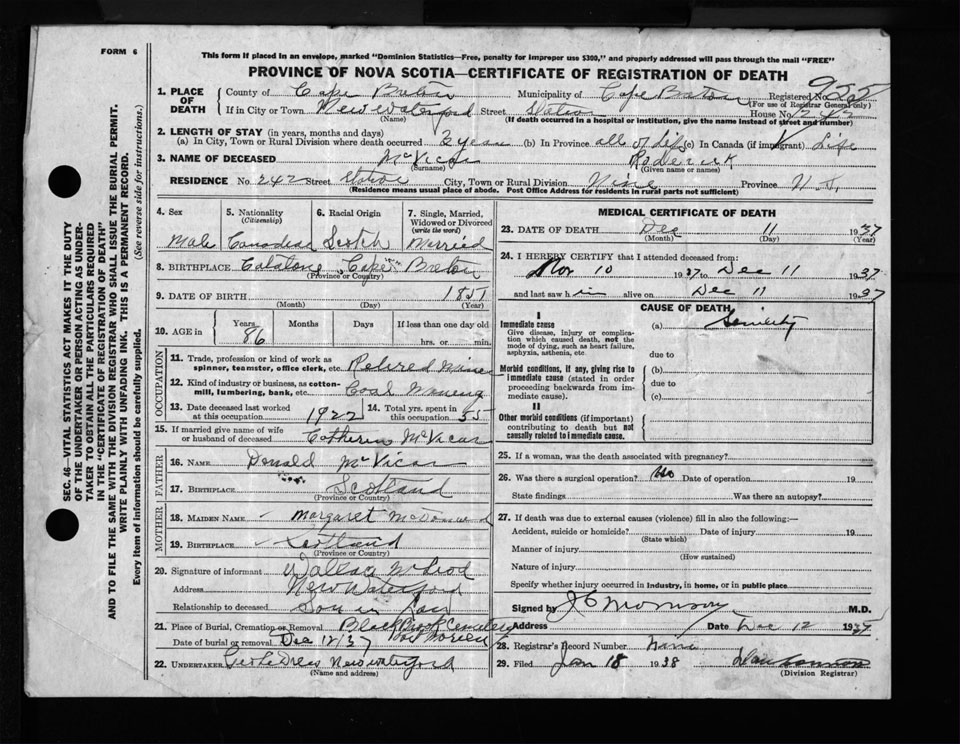 FORM 6
This form if placed in an envelope, marked "Dominion Statistics—Free, penalty for improper use $300," and properly addressed will pass through the mail "FREE"
PROVINCE OF NOVA SCOTIA—CERTIFICATE OF REGISTRATION OF DEATH
SEC. 46—VITAL STATISTICS ACT MAKES IT THE DUTY
OF THE UNDERTAKER OR PERSON ACTING AS UNDER-
TAKER TO OBTAIN ALL THE PARTICULARS REQUIRED
IN THE "CERTIFICATE OF REGISTRATION OF DEATH"
AND TO FILE THE SAME WITH THE DIVISION REGISTRAR WHO SHALL ISSUE THE BURIAL PERMIT.
WRITE PLAINLY WITH UNFADING INK. THIS IS A PERMANENT RECORD.
Every item of information should be carefully supplied. (See reverse side for instructions.)
1. PLACE OF DEATH
County of Cape Breton Municipality of Cape Breton Registered No. 955
(For use of Registrar General only)
If in City or Town New Waterford Street Station House No. 242
(Name) (If death occurred in a hospital or institution, give the name instead of street and number)
2. LENGTH OF STAY (in years, months and days)
(a) In City, Town or Rural Division where death occurred 2 years (b) In Province all of Life (c) In Canada (if immigrant) Life
3. NAME OF DECEASED McVicar Roderick
(Surname) (Given name or names)
RESIDENCE No. 242 Street Station City, Town or Rural Division Province N.S.
(Residence means usual place of abode. Post Office Address for residents in rural parts not sufficient)
4. Sex 5. Nationality (Citizenship) 6. Racial Origin 7. Single, Married, Widowed or Divorced (write the word)
Male Canadian Scotch Married
8. BIRTHPLACE Catalone Cape Breton
(Province or Country)
9. DATE OF BIRTH 1851
(Month) (Day) (Year)
10. AGE in Years Months Days If less than one day old
86 hrs. or min.
OCCUPATION
11. Trade, profession or kind of work as spinner, teamster, office clerk, etc. Retired Miner
12. Kind of industry or business, as cotton-mill, lumbering, bank, etc. Coal Mining
13. Date deceased last worked at this occupation 1922 14. Total yrs. spent in this occupation 55
15. If married give name of wife or husband of deceased Catherine McVicar
FATHER
16. NAME Donald McVicar
17. BIRTHPLACE Scotland
(Province or Country)
MOTHER
18. MAIDEN NAME Margaret
19. BIRTHPLACE Scotland
(Province or Country)
20. Signature of informant Wallace McLeod
Address New Waterford
Relationship to deceased Son in Law
21. Place of Burial, Cremation or Removal Black Brook Cemetery
Port Morien
Date of burial or removal Dec 12/37
22. UNDERTAKER New Waterford
(Name and address)
MEDICAL CERTIFICATE OF DEATH
23. DATE OF DEATH Dec 11 1937
(Month) (Day) (Year)
24. I HEREBY CERTIFY that I attended deceased from:
Nov 10 1937 to Dec 11 1937
and last saw him alive on Dec 11 1937
CAUSE OF DEATH
I
Immediate cause (a) Senility
Give disease, injury or complication which caused death, not the mode of dying, such as heart failure, asphyxia, asthenia, etc.
due to
Morbid conditions, if any, giving rise to immediate cause (stated in order proceeding backwards from immediate cause).
(b)
due to
(c)
II
Other morbid conditions (if important) contributing to death but not causally related to immediate cause.
25. If a woman, was the death associated with pregnancy?
26. Was there a surgical operation? No Date of operation 19
State findings Was there an autopsy?
27. If death was due to external causes (violence) fill in also the following:—
Accident, suicide or homicide? Date of injury 19
(State which)
Manner of injury
(How sustained)
Nature of injury
Specify whether injury occurred in industry, in home, or in public place
Signed by M.D.
Address Date Dec 12 1937
28. Registrar's Record Number
29. Filed Jan 18 1938
(Division Registrar)